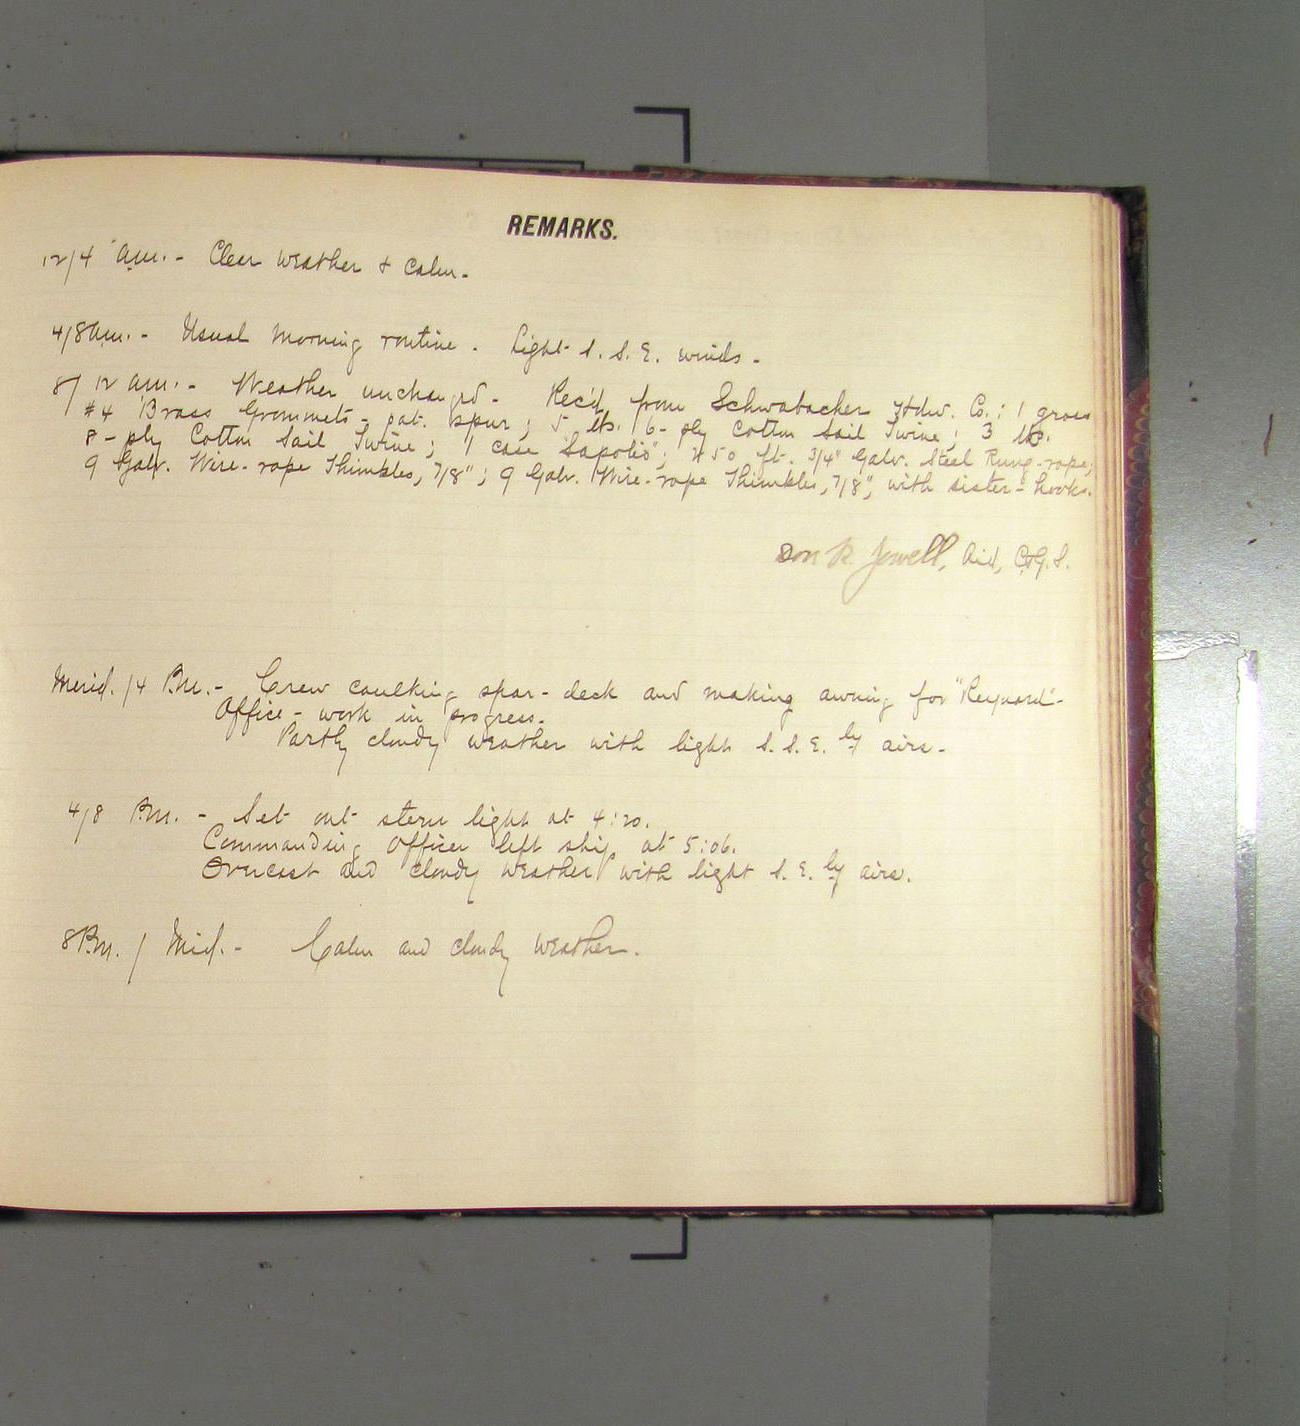 REMARKS.
12/4 a.m. - Clear weather & calm -
4/8 a.m. - Usual morning routine. Light S. S. E. winds -
8/12 a.m. - Weather unchang'd - Rec'd from Schwabacher Hdw. Co.: 1 gross
#4 Brass Grommets - pat. spur; 5 lbs. 6-ply Cotton Sail Twine; 3 lbs.
8-ply Cotton Sail Twine; 1 case "Sapolio"; 450 ft. 3/4" Galv. Steel Rung-rope;
9 Galv. Wire-rope Thimbles, 7/8"; 9 Galv. Wire-rope Thimbles, 7/8", with sister-hooks.
Don R. Jewell, Aid, C.&G.S.
Merid./4 P.M. - Crew caulking spar-deck and making awning for
Office - work in progress.
Partly cloudy weather with light S. S. E.ly airs -
4/8 P.M. - Set out stern light at 4:20.
Commanding Officer left ship at 5:06.
Overcast and cloudy weather with light S. E.ly airs.
8 P.M. / Mid. - Calm and cloudy weather.